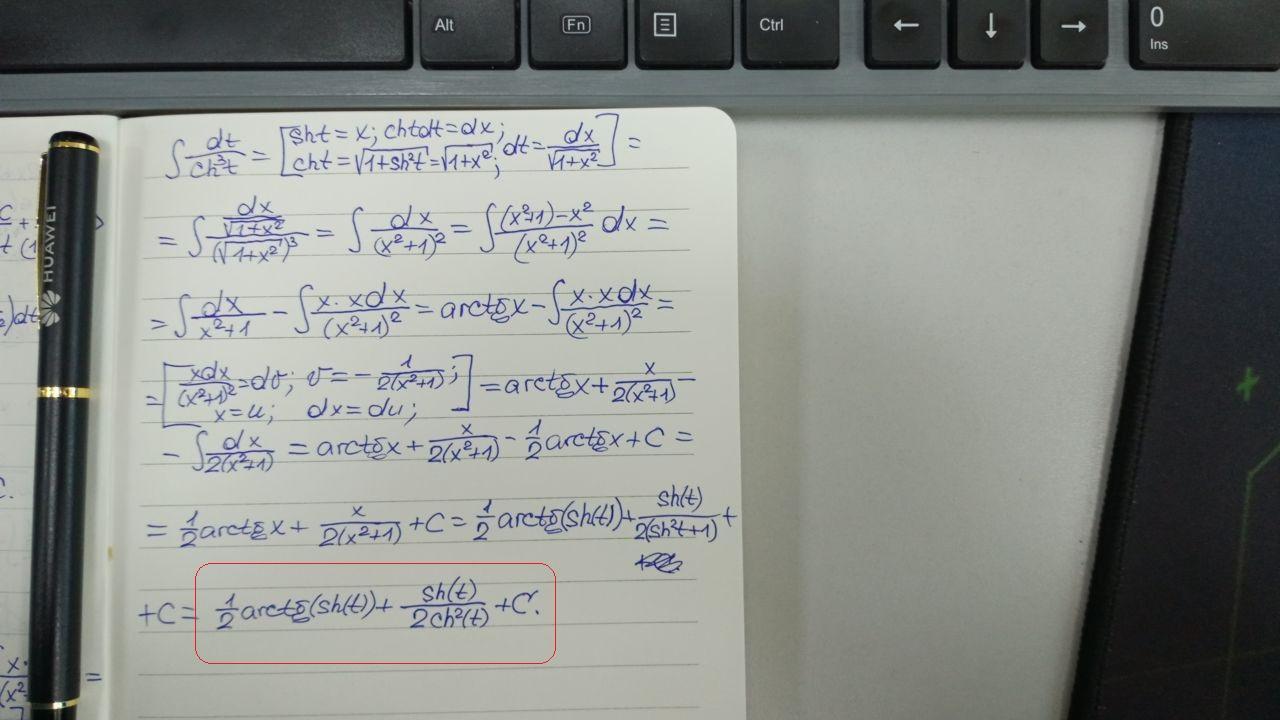 Alt Fn Ctrl ← ↓ → 0 Ins
HUAWEI
∫ dt/ch³t = [sht = x; chtdt = dx; cht = √(1+sh²t) = √(1+x²); dt = dx/√(1+x²)] =
= ∫ (dx/√(1+x²))/(√(1+x²))³ = ∫ dx/(x²+1)² = ∫ ((x²+1)-x²)/(x²+1)² dx =
= ∫ dx/(x²+1) - ∫ x·xdx/(x²+1)² = arctgx - ∫ x·xdx/(x²+1)² =
= [xdx/(x²+1)² = dv; v = -1/(2(x²+1)); x = u; dx = du;] = arctgx + x/(2(x²+1)) -
- ∫ dx/(2(x²+1)) = arctgx + x/(2(x²+1)) - 1/2 arctgx + C =
= 1/2 arctgx + x/(2(x²+1)) + C = 1/2 arctg(sh(t)) + sh(t)/(2(sh²t+1)) +
+C = 1/2 arctg(sh(t)) + sh(t)/(2ch²(t)) + C.